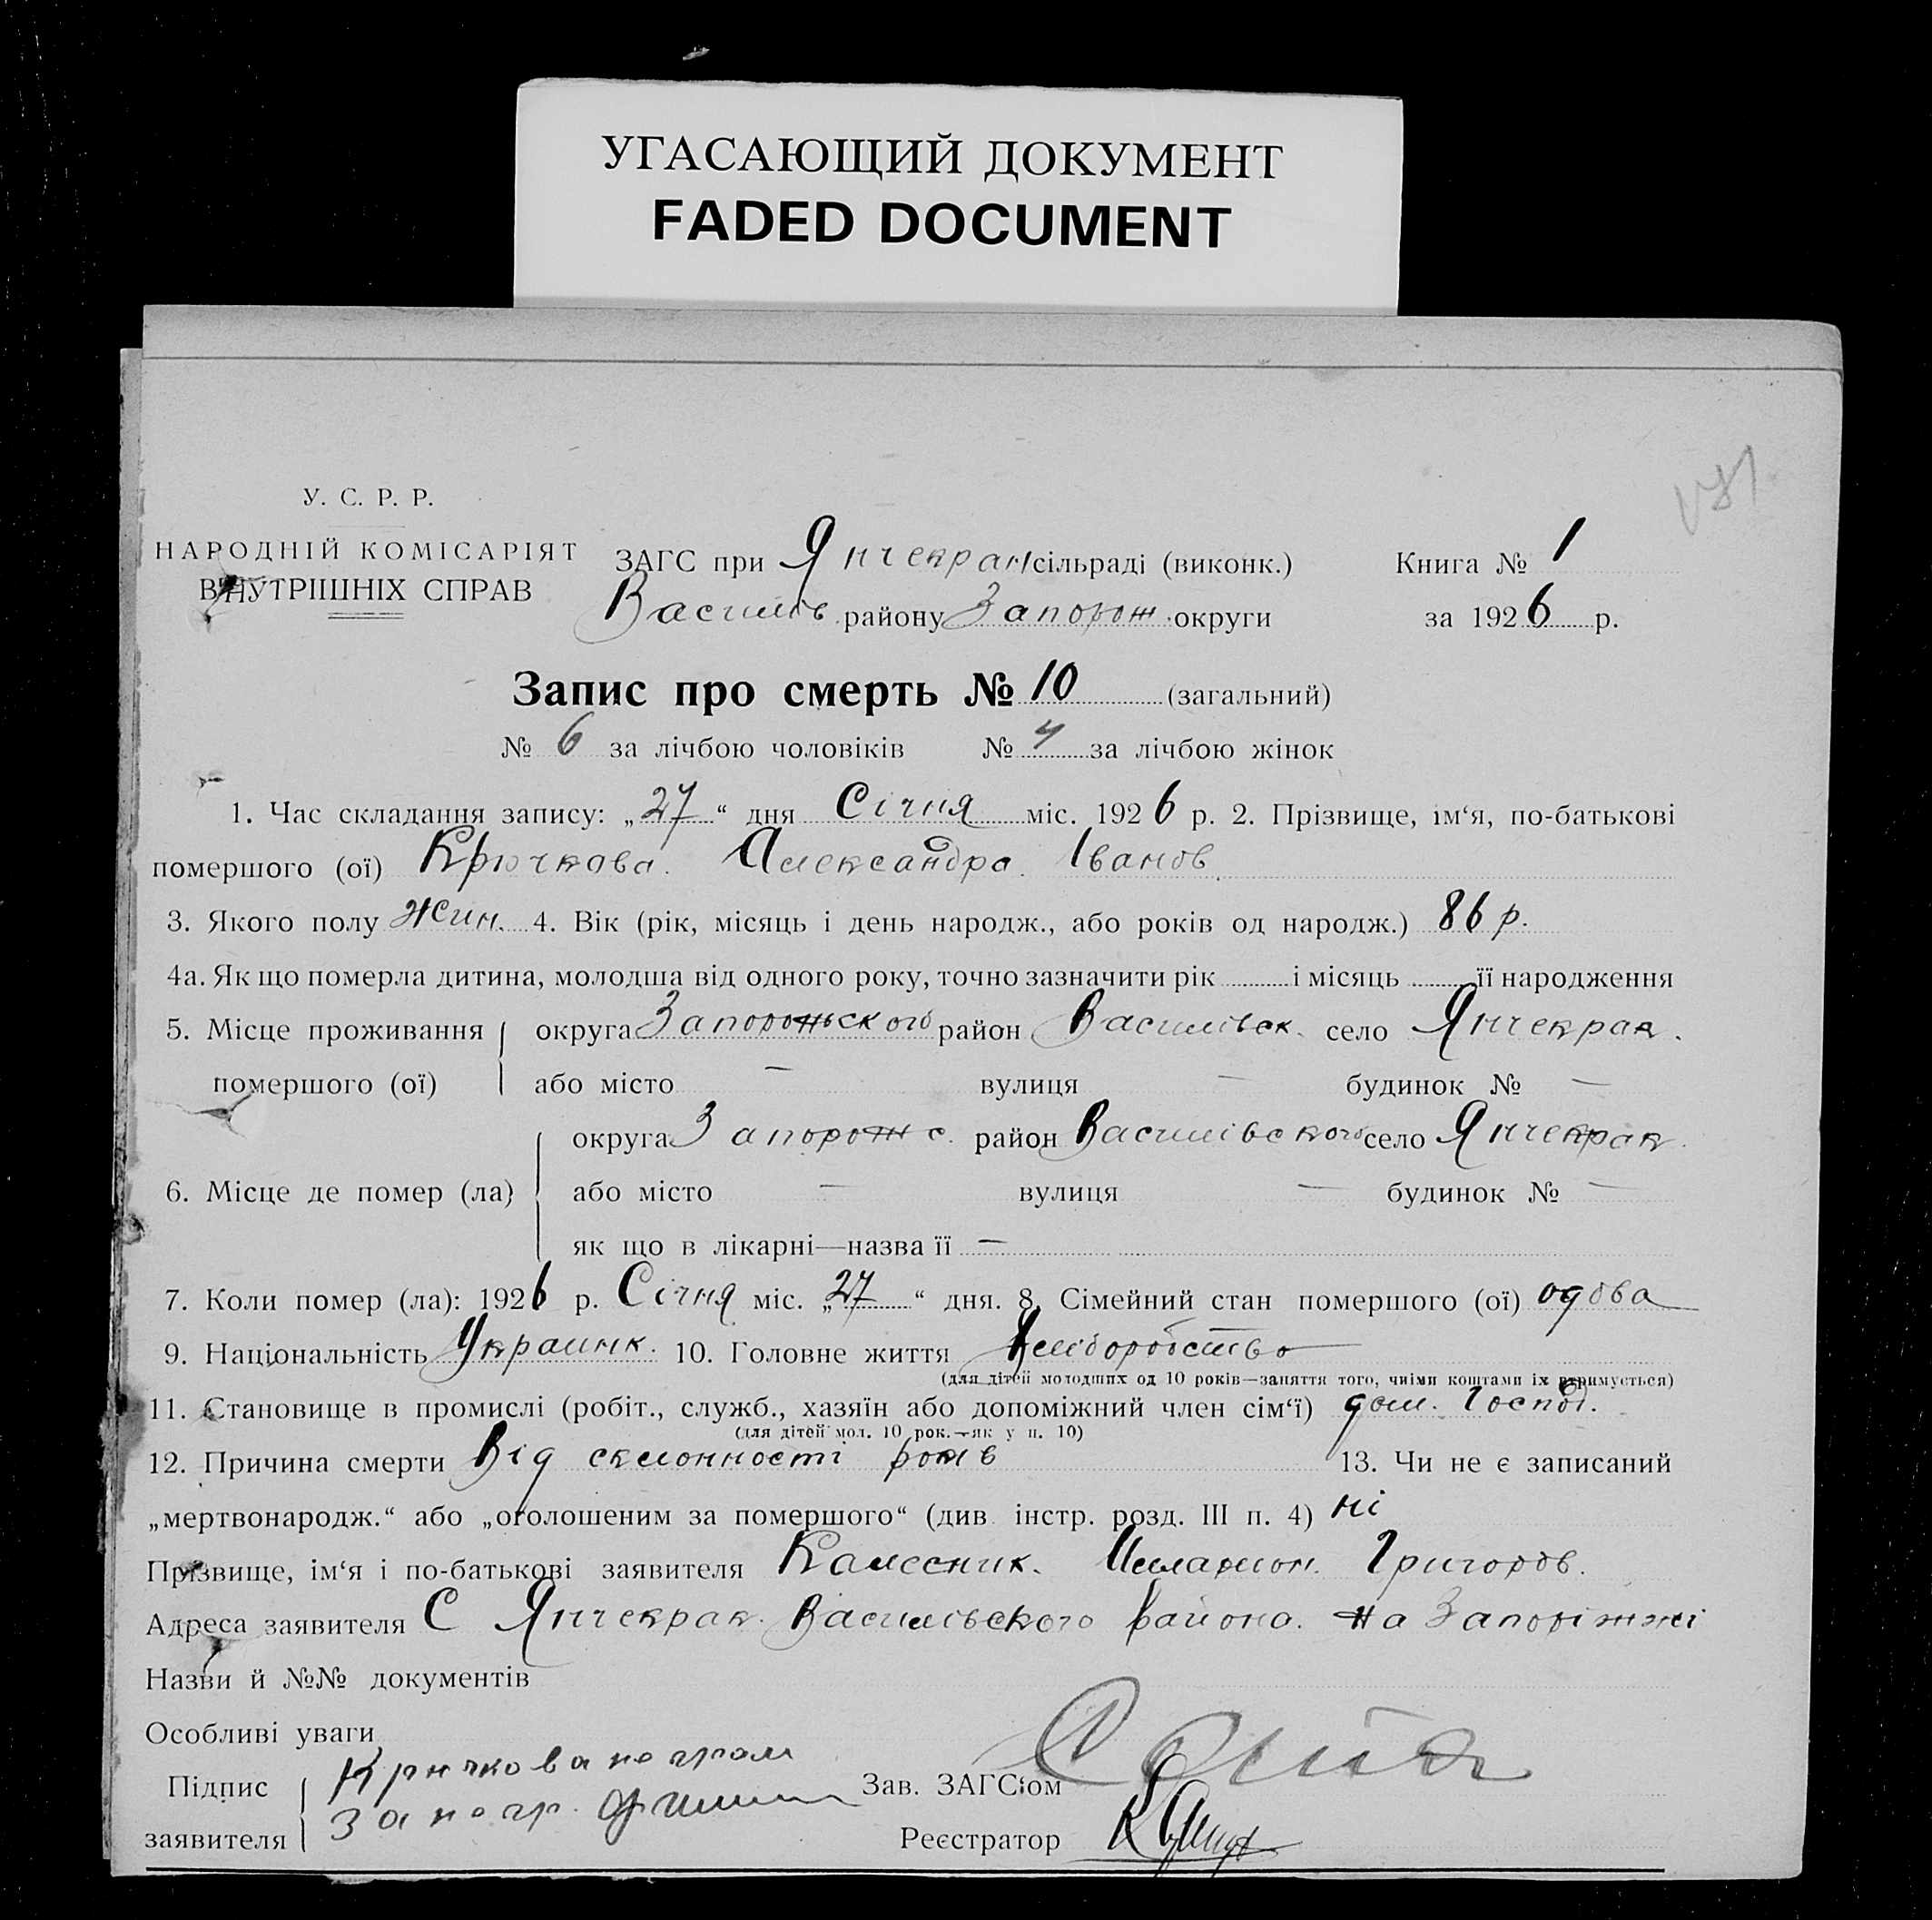 УГАСАЮЩИЙ ДОКУМЕНТ
FADED DOCUMENT
У. С. Р. Р.
НАРОДНІЙ КОМІСАРІЯТ
ВНУТРІШНІХ СПРАВ
ЗАГС при Янчекрак сільраді (виконк.) Книга № 1
Василів. району Запорож. округи за 1926 р.
Запис про смерть № 10 (загальний)
№ 6 за лічбою чоловіків № 4 за лічбою жінок
1. Час складання запису: „27“ дня Січня міс. 1926 р. 2. Прізвище, ім‘я, по-батькові
помершого (ої) Крючкова. Александра. Іванов.
3. Якого полу жин. 4. Вік (рік, місяць і день народж., або років од народж.) 86 р.
4а. Як що померла дитина, молодша від одного року, точно зазначити рік і місяць її народження
5. Місце проживання округа Запорожського район Василівск. село Янчекрак.
помершого (ої) або місто — вулиця — будинок № —
округа Запорожс. район Василівского село Янчекрак.
6. Місце де помер (ла) або місто — вулиця — будинок № —
як що в лікарні—назва її —
7. Коли помер (ла): 1926 р. Січня міс. „27“ дня. 8. Сімейний стан помершого (ої) одова
9. Національність Украинк. 10. Головне життя Хліборобство
(для дітей молодших од 10 років—заняття того, чиїми коштами їх втримується)
11. Становище в промислі (робіт., служб., хазяїн або допоміжний член сім‘ї) дом. Господ.
(для дітей мол. 10 рок.—як у п. 10)
12. Причина смерти Від склонності років 13. Чи не є записаний
„мертвонародж.“ або „оголошеним за помершого“ (див. інстр. розд. III п. 4) ні
Прізвище, ім‘я і по-батькові заявителя Калесник. Иларион. Григоров.
Адреса заявителя С Янчекрак. Василівского району. на Запоріжжі
Назви й №№ документів
Особливі уваги
Підпис Крючкова неграм
Зав. ЗАГС‘ом
заявителя за негр.
Реєстратор